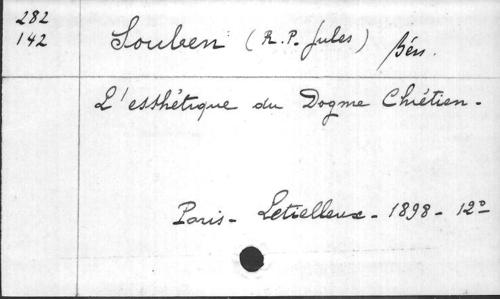 282
142
Souben (R.P. Jules) Bén.
L'esthétique du Dogme Chrétien.
Paris - Lethielleux - 1898 - 12°